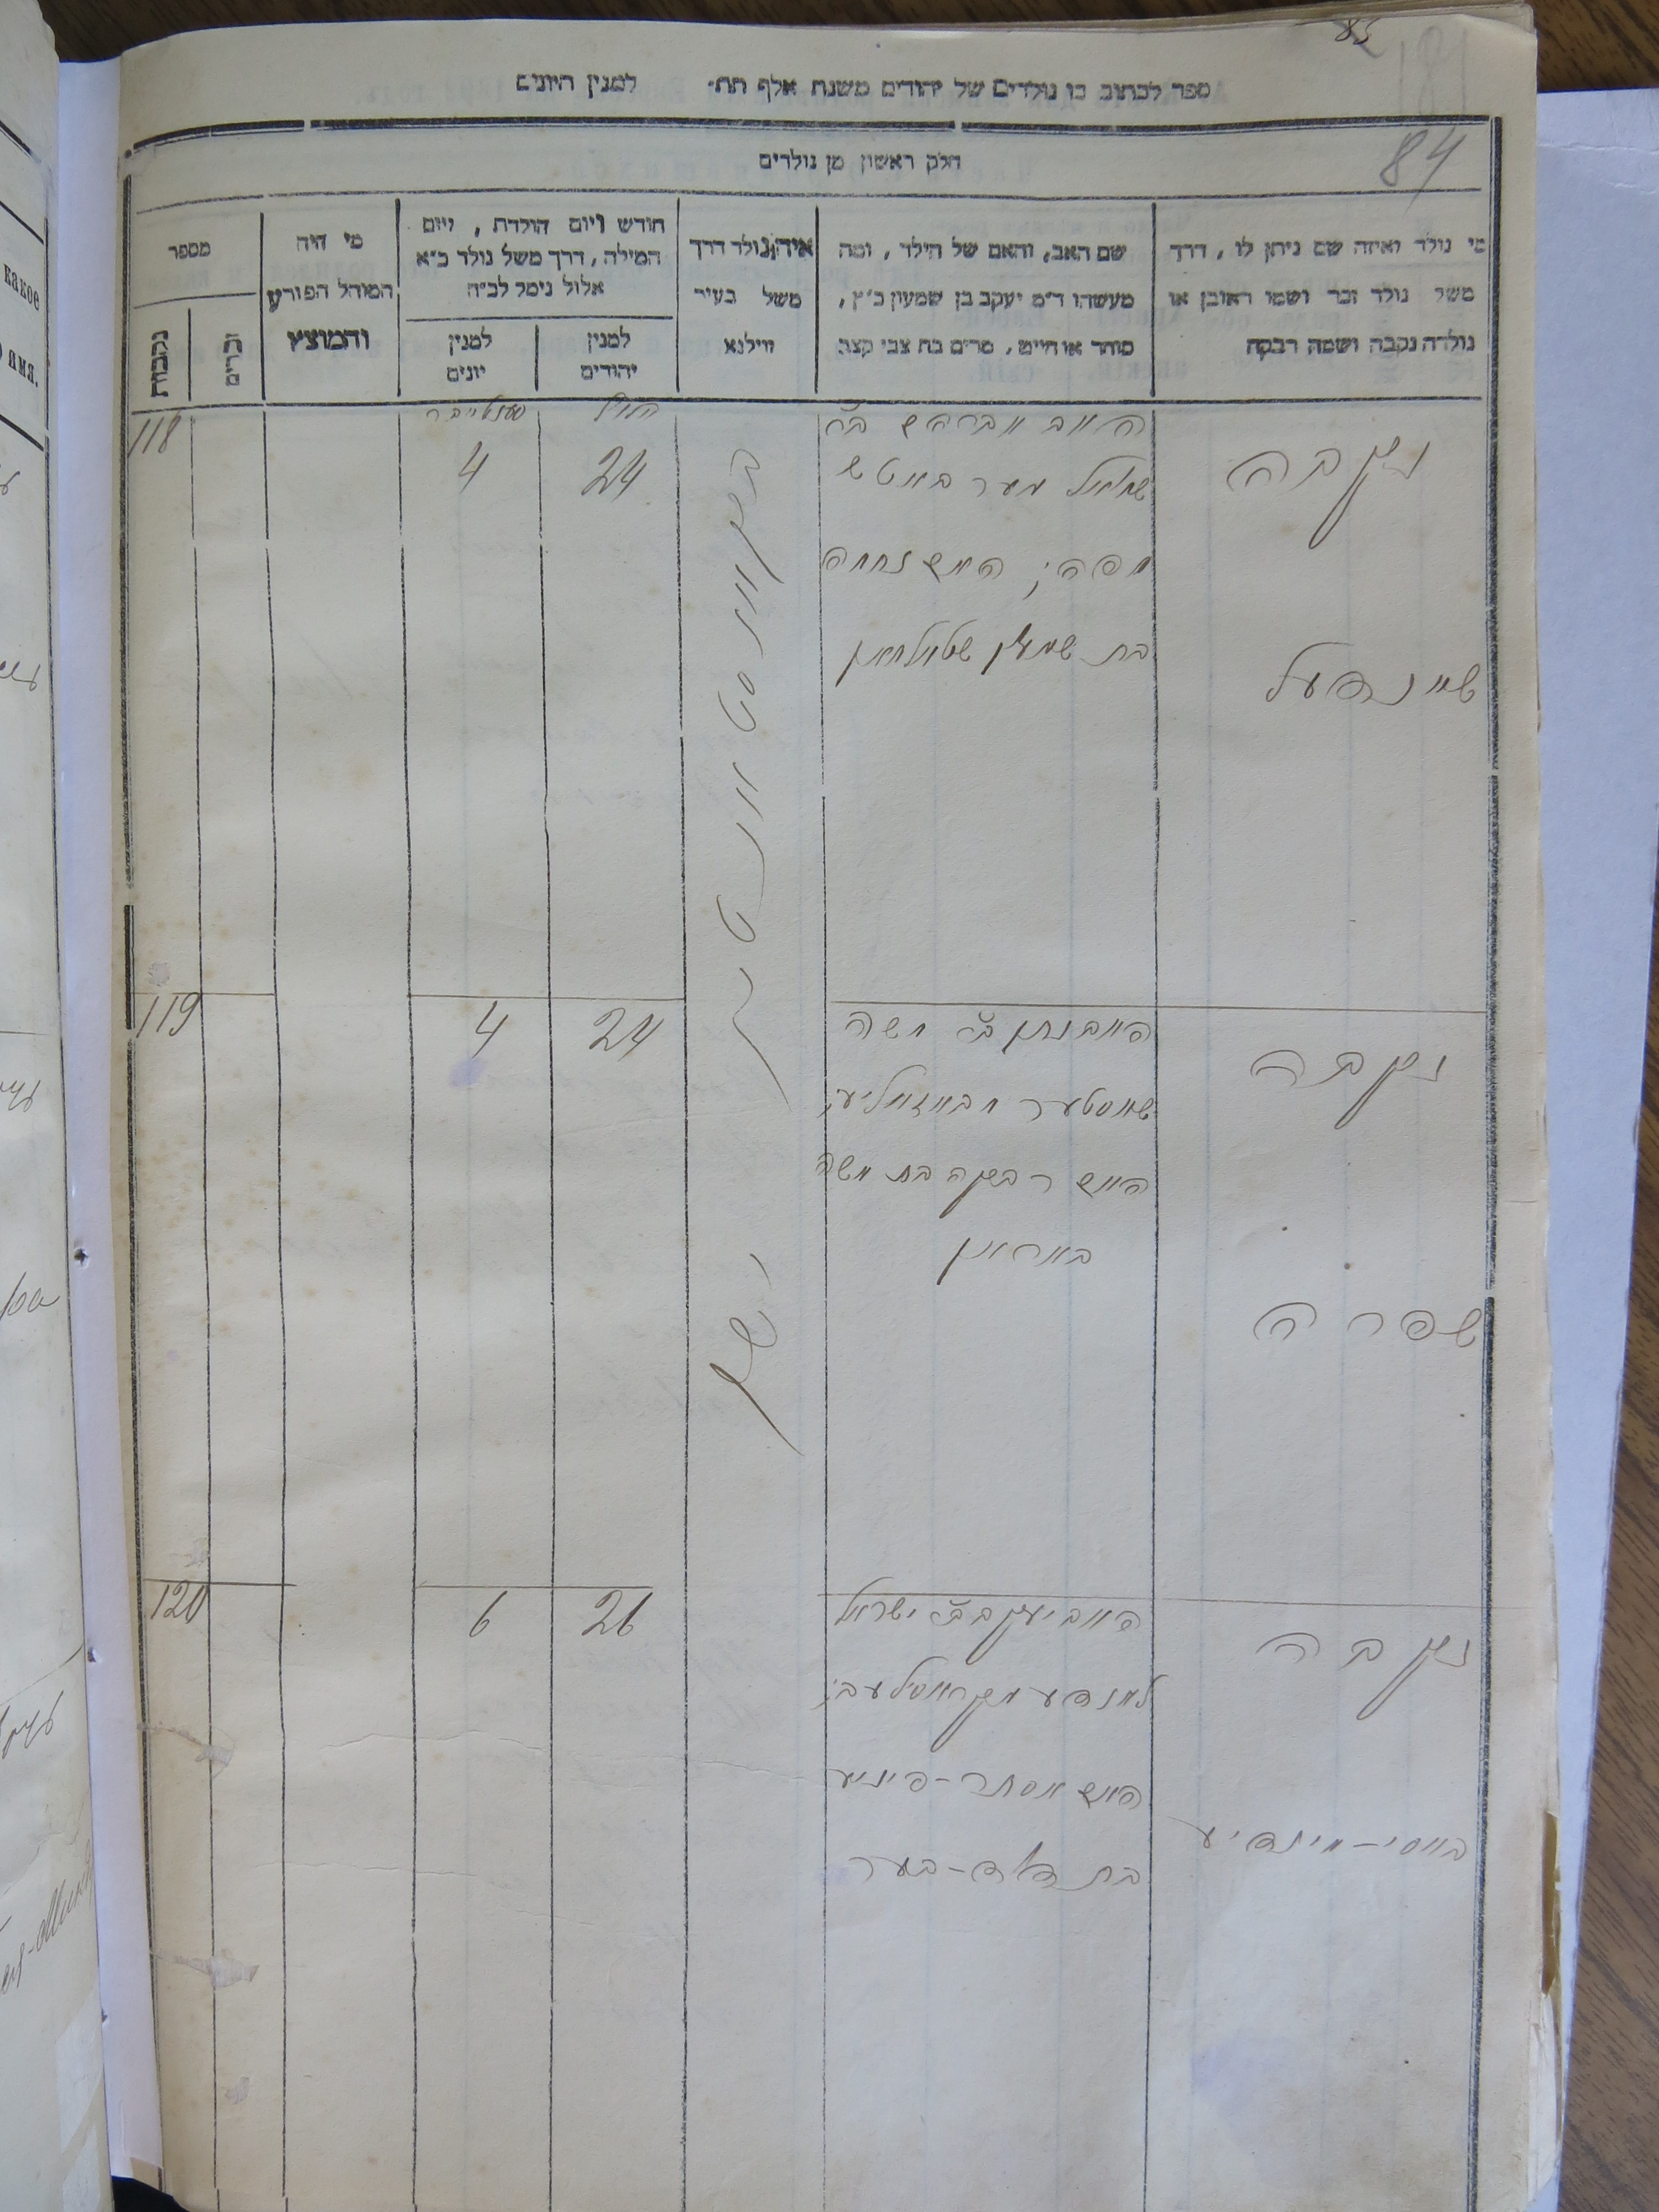 ספר לכתוב בו נולדים של יהודים משנת אלף תת׳ למנין היונים
84
חלק ראשון מן נולדים
מי נולד ואיזה שם ניתן לו, דרך
משל נולד זכר ושמו ראובן או
נולדה נקבה ושמה רבקה
שם האב, והאם של הילד, ומה
מעשהו ד״מ יעקב בן שמעון כ״ץ,
סוחר או חייט, מרים בת צבי קצב
איה נולד דרך
משל בעיר
ווילנא
חודש ויום הולדת, ויום
המילה, דרך משל נולד כ״א
אלול נימל לכ״ח
למנין
יהודים
למנין
יונים
מי היה
המוהל הפורע
והמוצץ
מספר
זכרים
נקבות
נקבה
שיינדעל
האב אברהם ב״ר
שמואל
האם נחמה
בת שמעון
בקאנסטאנטין
ישן
24
סענטייבר
4
118
נקבה
שפרה
האב נתן ב״ר משה
שוסטער
האם רבקה בת משה
באראן
24
4
119
נקבה
באסי-מינדיע
האב יעקב ב״ר ישראל
לאנדע
האם אסתר-פיגע
בת דוד-בער
26
6
120